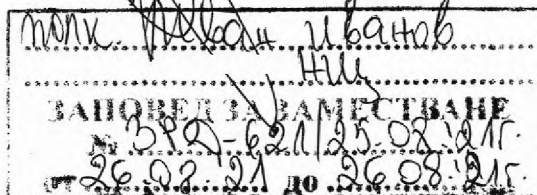 подп. Иван Иванов
НЩ
ЗАПОВЕД ЗА ЗАМЕСТВАНЕ
№ ЗРД-621/25.08.21г.
от 26.08.21 до 26.08.21г.